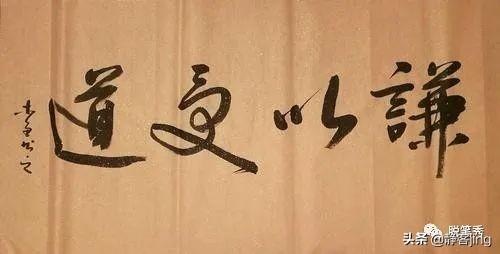 謙以受道
脱笔秀
头条 @静客jing